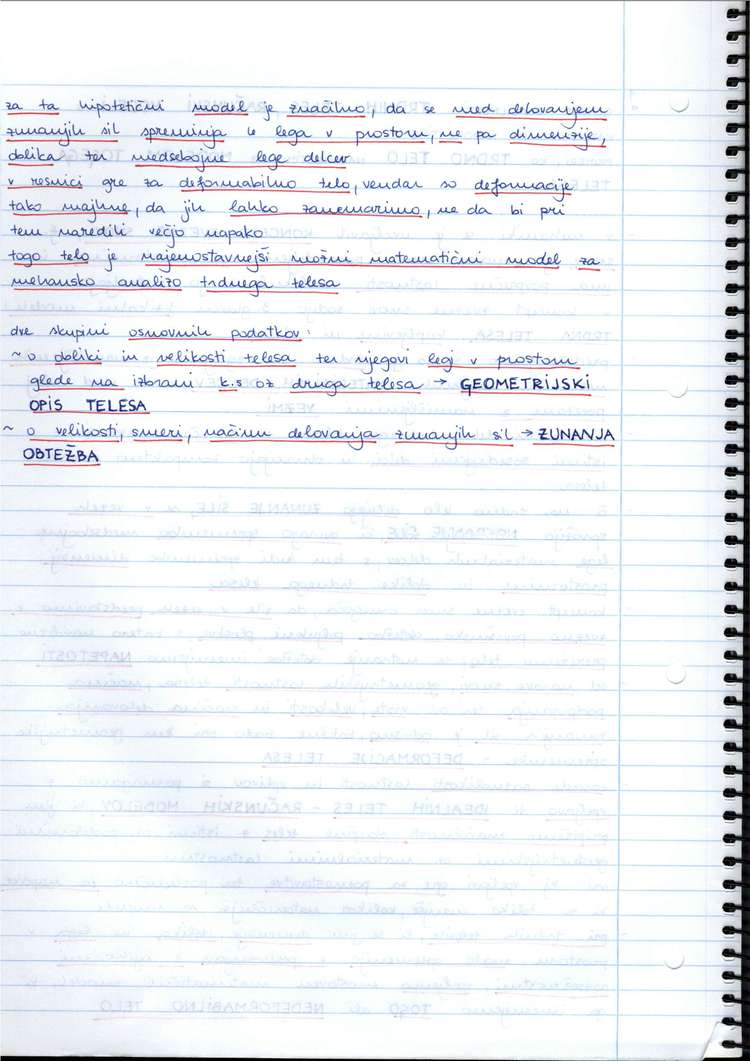 za ta hipotetični model je značilno, da se med delovanjem
zunanjih sil spreminja le lega v prostoru, ne pa dimenzije,
oblika ter medsebojne lege delcev
v resnici gre za deformabilno telo, vendar so deformacije
tako majhne, da jih lahko zanemarimo, ne da bi pri
tem naredili večjo napako
togo telo je najenostavnejši možni matematični model za
mehansko analizo trdnega telesa
dve skupini osnovnih podatkov:
~ o obliki in velikosti telesa ter njegovi legi v prostoru
glede na izbrani k.s oz druga telesa → GEOMETRIJSKI
OPIS TELESA
~ o velikosti, smeri, načinu delovanja zunanjih sil → ZUNANJA
OBTEŽBA